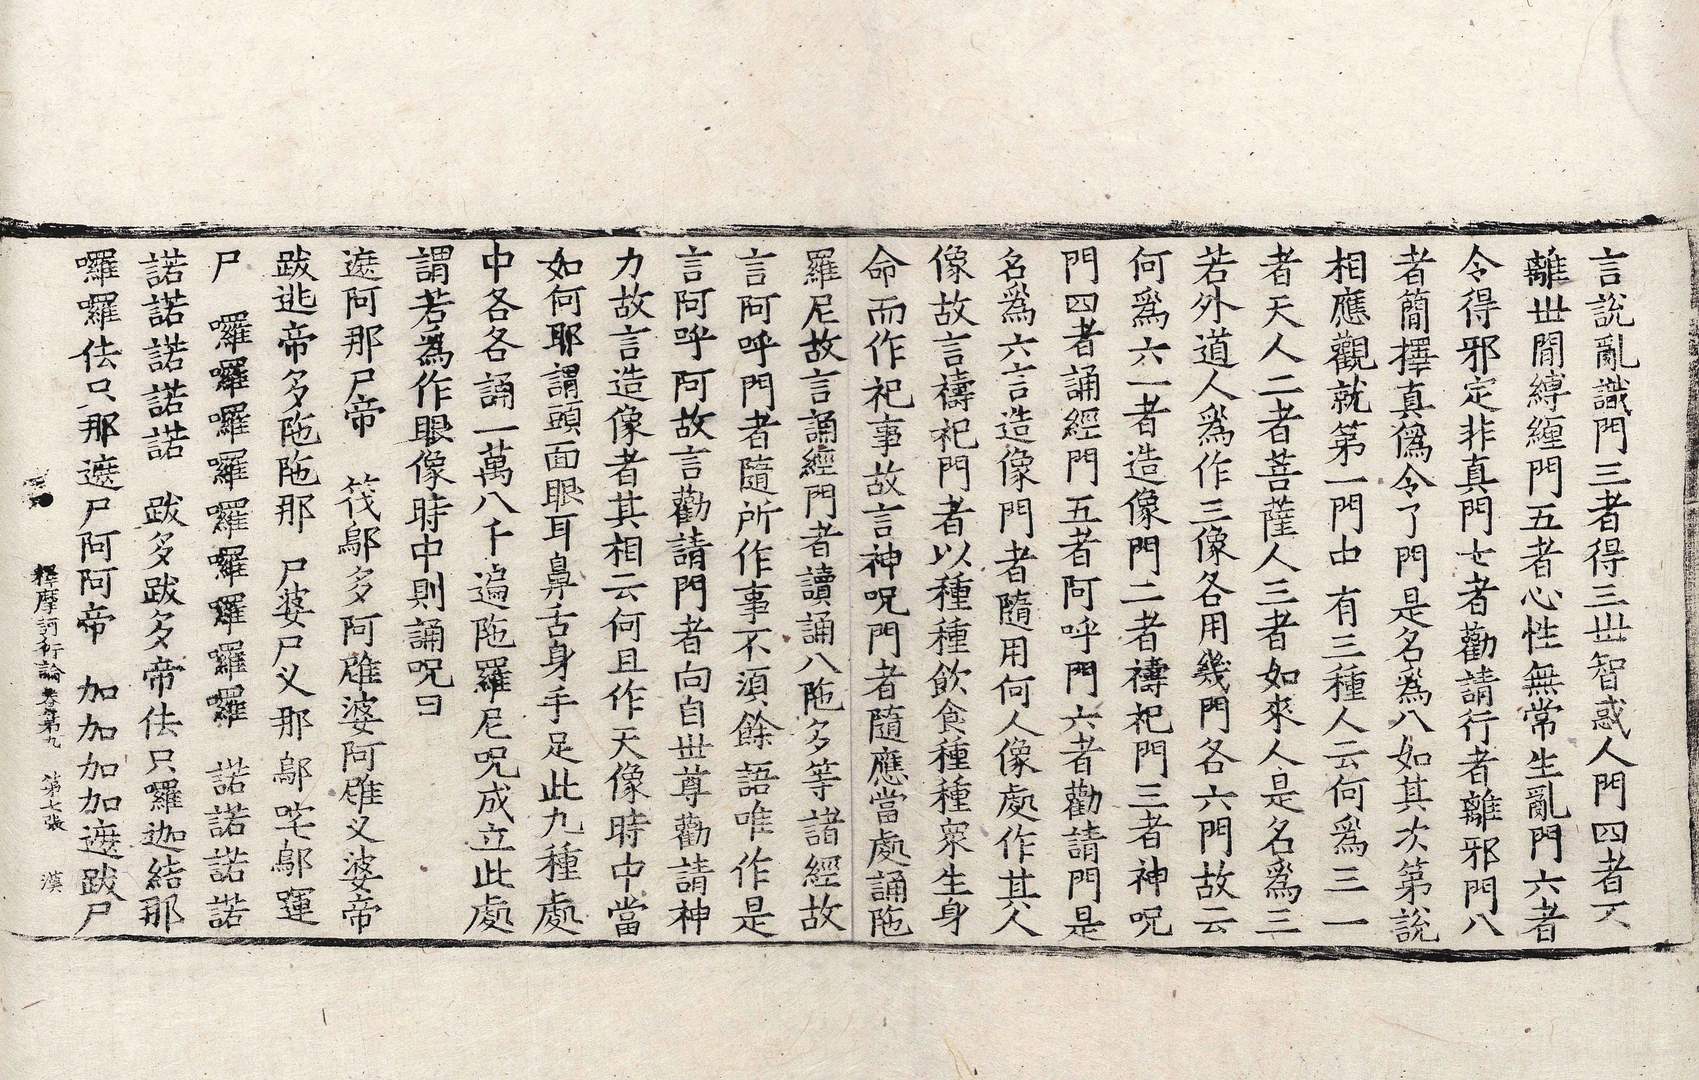 言說亂識門三者得三世智惑人門四者不
離世閒縛纏門五者心性無常生亂門六者
令得邪定非真門七者勸請行者離邪門八
者簡擇真僞令了門是名爲八如其次第說
相應觀就第一門中有三種人云何爲三一
者天人二者菩薩人三者如來人是名爲三
若外道人爲作三像各用幾門各六門故云
何爲六一者造像門二者禱祀門三者神呪
門四者誦經門五者阿呼門六者勸請門是
名爲六言造像門者隨用何人像處作其人
像故言禱祀門者以種種飲食種種衆生身
命而作祀事故言神呪門者隨應當處誦陁
羅尼故言誦經門者讀誦八陁多等諸經故
言阿呼門者隨所作事不湏餘語唯作是
言阿呼阿故言勸請門者向自世尊勸請神
力故言造像者其相云何且作天像時中當
如何耶謂頭面眼耳鼻舌身手足此九種處
中各各誦一萬八千遍陁羅尼呪成立此處
謂若爲作眼像時中則誦呪曰
遮阿那尸帝　筏鄔多阿雕婆阿雕义婆帝
跋逃帝多陁陁那　尸婆尸义那鄔咤鄔運
尸　囉囉囉囉囉囉囉囉囉　諾諾諾諾
諾諾諾諾諾　跋多跋多帝佉只囉迦結那
囉囉佉只那遮尸阿阿帝　加加加加遮跋尸
釋摩訶衍論卷第九　第七張　漠